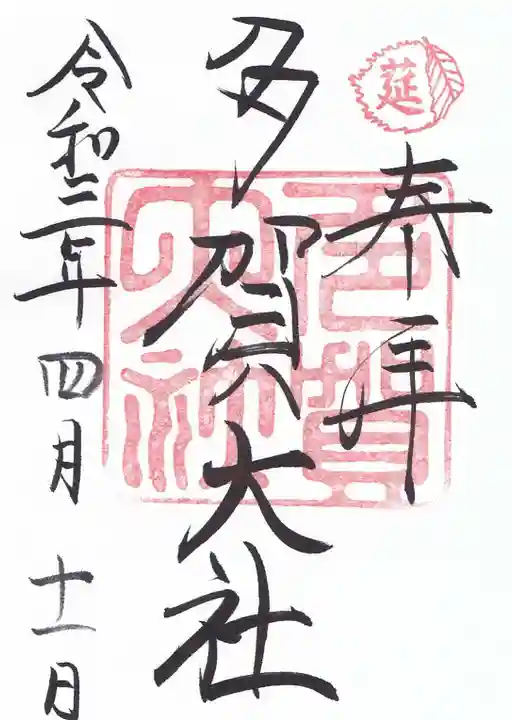 莚
奉拝
多賀大社
多賀大社
令和三年四月十一日